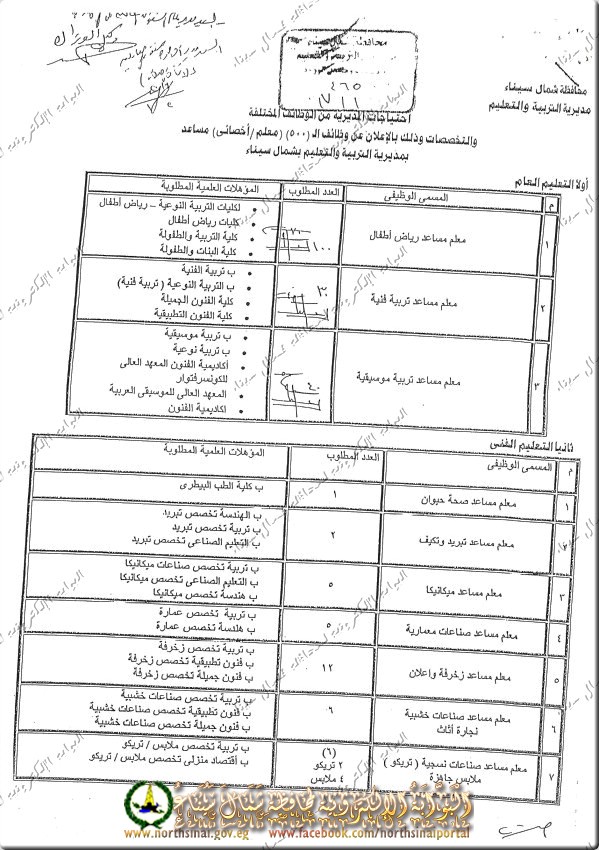 محافظة شمال سيناء
مديرية التربية والتعليم
محافظة شمال سيناء
التربية والتعليم
٤٦٥
١١ / ٧
احتياجات المديرية من الوظائف المختلفة
والتخصصات وذلك بالإعلان عن وظائف الـ (٥٠٠) (معلم /أخصائى) مساعد
بمديرية التربية والتعليم بشمال سيناء
أولا التعليم العام
م المسمى الوظيفى العدد المطلوب المؤهلات العلمية المطلوبة
١ معلم مساعد رياض أطفال ١٠٠
• لكليات التربية النوعية – رياض أطفال
• كليات رياض أطفال
• كلية التربية والطفولة
• كلية البنات والطفولة
٢ معلم مساعد تربية فنية ٣٠
• ب تربية الفنية
• ب التربية النوعية ( تربية فنية)
• كلية الفنون الجميلة
• كلية الفنون التطبيقية
٣ معلم مساعد تربية موسيقية ٤٠
• ب تربية موسيقية
• ب تربية نوعية
• أكاديمية الفنون المعهد العالى
للكونسرفتوار
• المعهد العالى للموسيقى العربية
• اكاديمية الفنون
ثانيا التعليم الفنى
م المسمى الوظيفى العدد المطلوب المؤهلات العلمية المطلوبة
١ معلم مساعد صحة حيوان ١ ب كلية الطب البيطرى
٢ معلم مساعد تبريد وتكيف ٢
ب الهندسة تخصص تبريد
ب تربية تخصص تبريد
ب التعليم الصناعى تخصص تبريد
٣ معلم مساعد ميكانيكا ٥
ب تربية تخصص صناعات ميكانيكا
ب التعليم الصناعى تخصص ميكانيكا
ب هندسة تخصص ميكانيكا
٤ معلم مساعد صناعات معمارية ٥
ب تربية تخصص عمارة
ب هندسة تخصص عمارة
٥ معلم مساعد زخرفة واعلان ١٢
ب تربية تخصص زخرفة
ب فنون تطبيقية تخصص زخرفة
ب فنون جميلة تخصص زخرفة
٦ معلم مساعد صناعات خشبية
نجارة أثاث
٦
ب تربية تخصص صناعات خشبية
ب فنون تطبيقية تخصص صناعات خشبية
ب فنون جميلة تخصص صناعات خشبية
٧ معلم مساعد صناعات نسجية ( تريكو )
ملابس جاهزة
(٦)
٢ تريكو
٤ ملابس
ب تربية تخصص ملابس / تريكو
ب أقتصاد منزلى تخصص ملابس / تريكو
البوابة الإلكترونية لمحافظة شمال سيناء
www.northsinai.gov.eg www.facebook.com/northsinaiportal